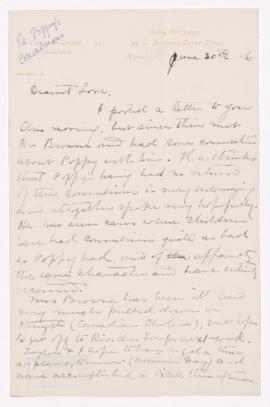 Re Poppy's
Convulsions
June 30th 96
Dearest Love,
I posted a letter to you
this morning, but since then met
Dr Browne and had some conversation
about Poppy with him. He thinks
that Poppy's having had no return
of the convulsions is very encouraging
and altogether spoke very hopefully.
He has seen cases where children
have had convulsions quite as bad
as Poppy had, and of the apparently
the same character and have entirely
recovered.
Mrs Browne has been ill and
very much pulled down in
(Canadian Cholera), but hopes
to get off to
Taylor & I hope to have a gala time
(Dominion Day) and
have accomplished a little this afternoon.